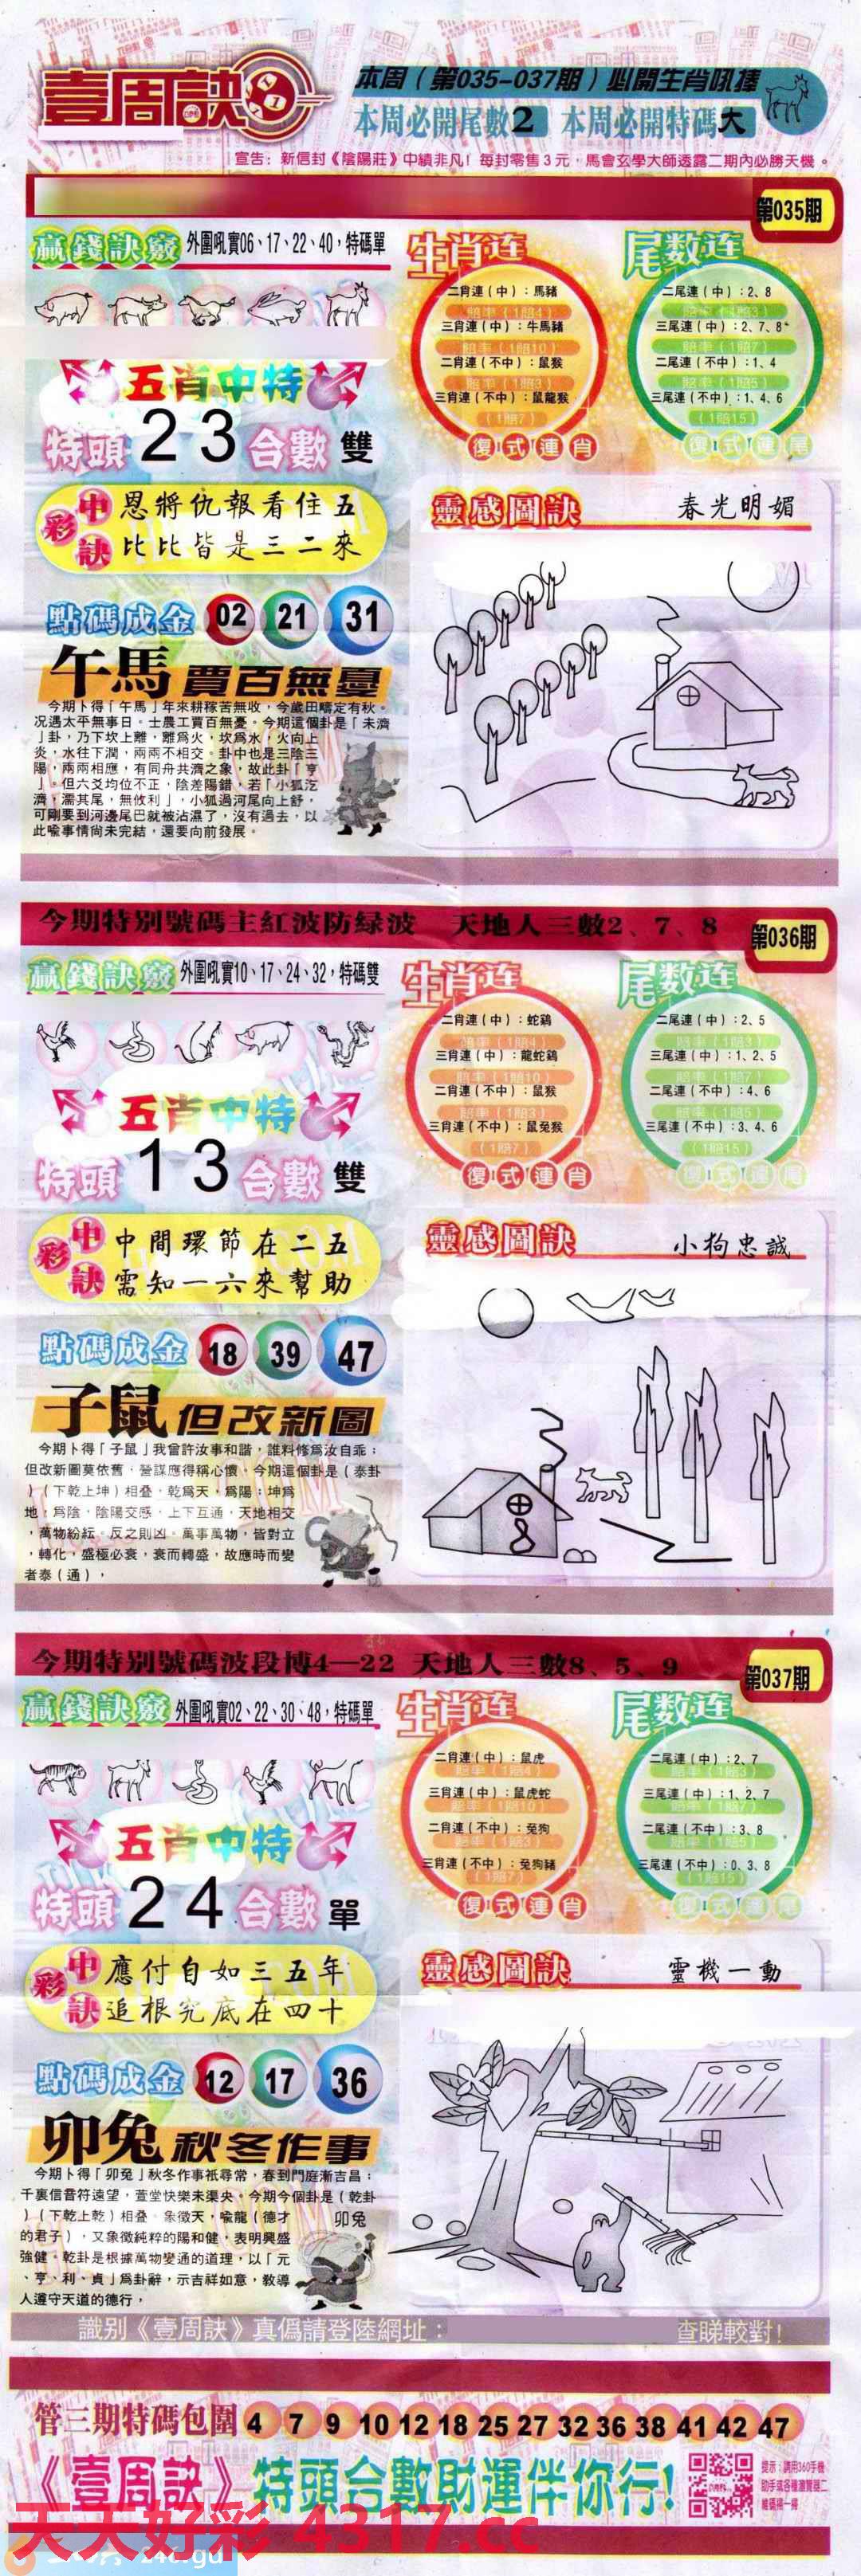 壹周訣
本周（第035-037期）必開生肖吼捧
本周必開尾數2 本周必開特碼大
宣告：新信封《陰陽莊》中績非凡！每封零售3元，馬會玄學大師透露二期內必勝天機。
第035期
贏錢訣竅 外圍吼實06、17、22、40，特碼單
五肖中特
特頭 2 3 合數 雙
中彩訣
恩將仇報看住五
比比皆是三二來
點碼成金 02 21 31
午馬 賈百無憂
今期卜得「午馬」年來耕稼苦無收，今歲田疇定有秋。
况遇太平無事日。士農工賈百無憂。今期這個卦是「未濟
」卦，乃下坎上離，離爲火，坎爲水，火向上
炎，水往下潤，兩兩不相交。卦中也是三陰三
陽，兩兩相應，有同舟共濟之象，故此卦「亨
」。但六爻均位不正，陰差陽錯，若「小狐汔
濟，濡其尾，無攸利」，小狐過河尾向上舒，
可剛要到河邊尾巴就被沾濕了，沒有過去，以
此喻事情尚未完結，還要向前發展。
生肖连
二肖連（中）：馬豬
賠率（1賠4）
三肖連（中）：牛馬豬
賠率（1賠10）
二肖連（不中）：鼠猴
賠率（1賠3）
三肖連（不中）：鼠龍猴
（1賠7）
復式連肖
尾数连
二尾連（中）：2、8
賠率（1賠3）
三尾連（中）：2、7、8
賠率（1賠7）
二尾連（不中）：1、4
賠率（1賠5）
三尾連（不中）：1、4、6
（1賠15）
復式連尾
靈感圖訣 春光明媚
今期特别號碼主紅波防緑波 天地人三數2、7、8
第036期
贏錢訣竅 外圍吼實10、17、24、32，特碼雙
五肖中特
特頭 1 3 合數 雙
中彩訣
中間環節在二五
需知一六來幫助
點碼成金 18 39 47
子鼠 但改新圖
今期卜得「子鼠」我曾許汝事和諧，誰料修爲汝自乖；
但改新圖莫依舊，營謀應得稱心懷。今期這個卦是（泰卦
）（下乾上坤）相叠。乾爲天，爲陽；坤爲
地，爲陰，陰陽交感，上下互通，天地相交
，萬物紛紜。反之則凶。萬事萬物，皆對立
，轉化，盛極必衰，衰而轉盛，故應時而變
者泰（通），
生肖连
二肖連（中）：蛇鷄
賠率（1賠4）
三肖連（中）：龍蛇鷄
賠率（1賠10）
二肖連（不中）：鼠猴
賠率（1賠3）
三肖連（不中）：鼠兔猴
（1賠7）
復式連肖
尾数连
二尾連（中）：2、5
賠率（1賠3）
三尾連（中）：1、2、5
賠率（1賠7）
二尾連（不中）：4、6
賠率（1賠5）
三尾連（不中）：3、4、6
（1賠15）
復式連尾
靈感圖訣 小狗忠誠
今期特别號碼波段博4—22 天地人三數8、5、9
第037期
贏錢訣竅 外圍吼實02、22、30、48，特碼單
五肖中特
特頭 2 4 合數 單
中彩訣
應付自如三五年
追根究底在四十
點碼成金 12 17 36
卯兔 秋冬作事
今期卜得「卯兔」秋冬作事祇尋常，春到門庭漸吉昌；
千裏信音符遠望，萱堂快樂未渠央。今期今個卦是（乾卦
）（下乾上乾）相叠。象徵天，喻龍（德才
的君子），又象徵純粹的陽和健，表明興盛
強健。乾卦是根據萬物變通的道理，以「元
、亨、利、貞」爲卦辭，示吉祥如意，教導
人遵守天道的德行，
卯兔
生肖连
二肖連（中）：鼠虎
賠率（1賠4）
三肖連（中）：鼠虎蛇
賠率（1賠10）
二肖連（不中）：兔狗
賠率（1賠3）
三肖連（不中）：兔狗豬
（1賠7）
復式連肖
尾数连
二尾連（中）：2、7
賠率（1賠3）
三尾連（中）：1、2、7
賠率（1賠7）
二尾連（不中）：3、8
賠率（1賠5）
三尾連（不中）：0、3、8
（1賠15）
復式連尾
靈感圖訣 靈機一動
識别《壹周訣》真僞請登陸網址： 查睇較對！
管三期特碼包圍 4 7 9 10 12 18 25 27 32 36 38 41 42 47
《壹周訣》特頭合數財運伴你行！
提示：請用360手機
助手或各種瀏覽器二
維碼掃一掃
天天好彩 4317.cc